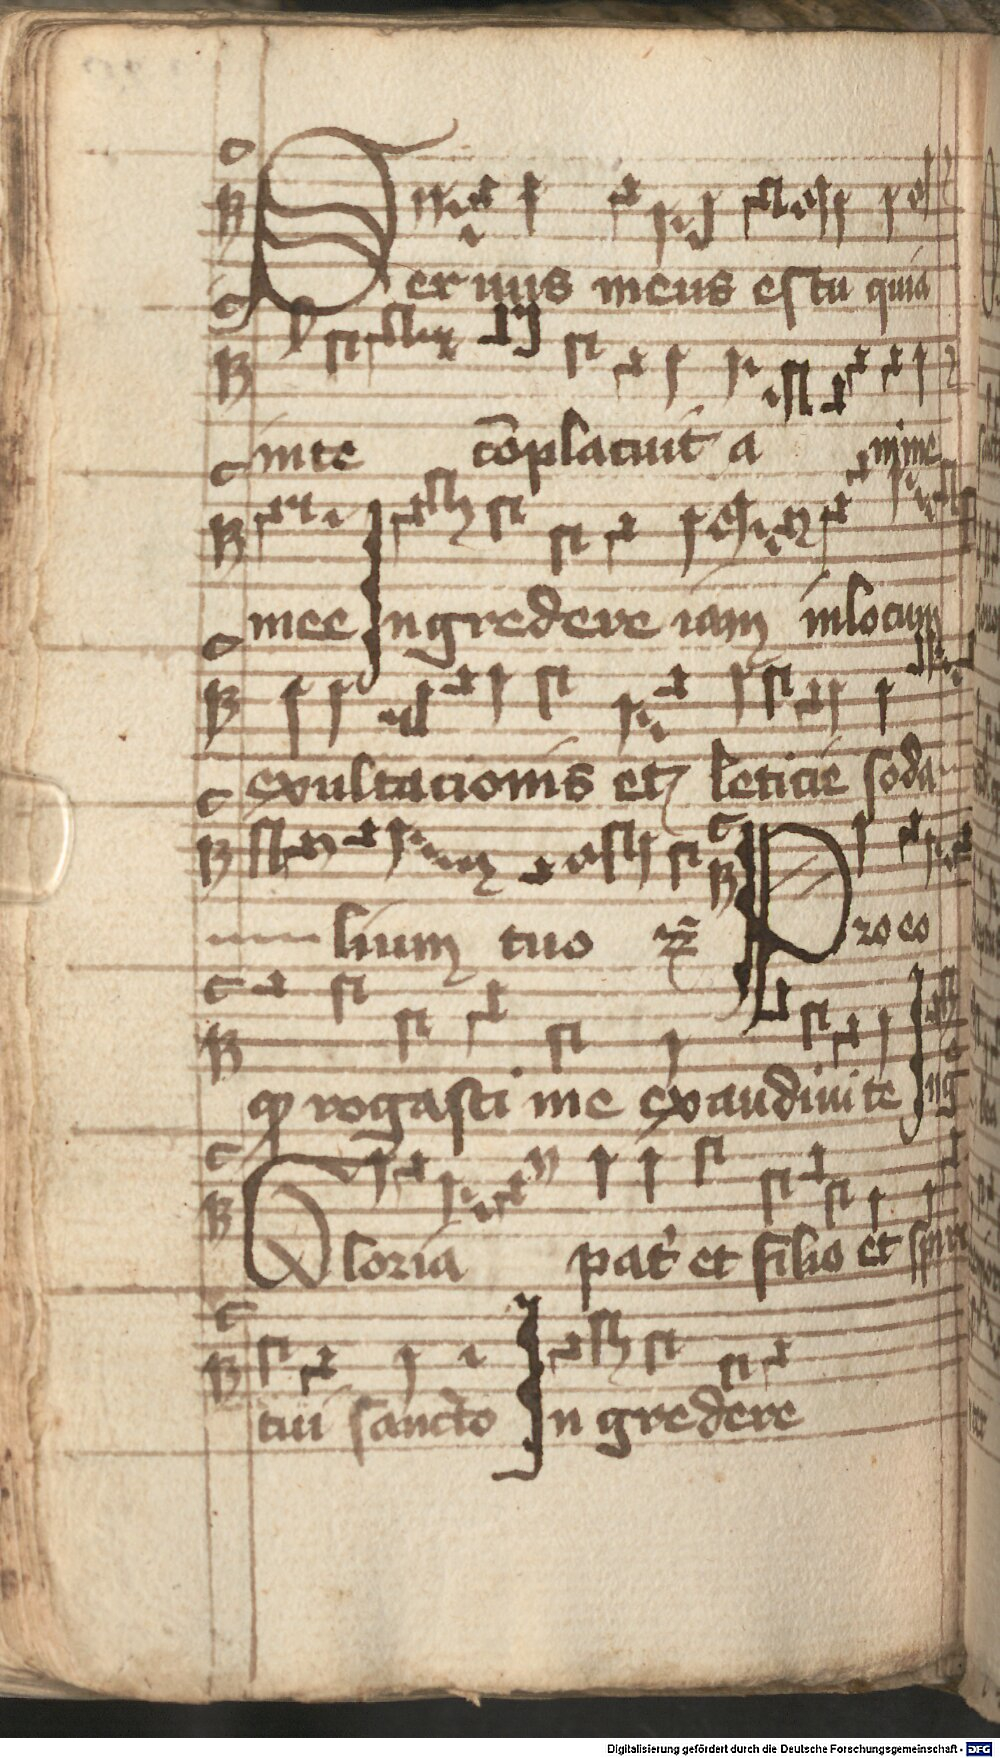 Seruus meus es tu quia
inte cōplacuit a nime
mee Ingredere iam inlocum
exultacionis et leticie soda
lium tuo Pro eo
rogasti me exaudiui te Ing
Gloria pat' et filio et spiri
tui sancto Ingredere
Digitalisierung gefördert durch die Deutsche Forschungsgemeinschaft - DFG